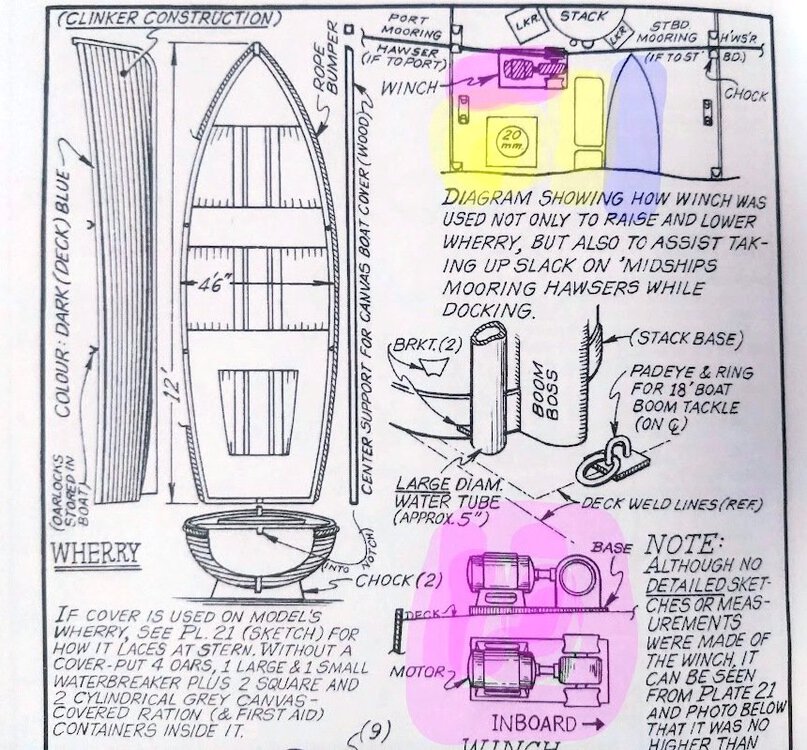 (CLINKER CONSTRUCTION)
COLOUR: DARK (DECK) BLUE
(OARLOCKS
STORED IN
BOAT)
12'
4'6"
ROPE
BUMPER
CENTER SUPPORT FOR CANVAS BOAT COVER (WOOD)
INTO
NOTCH)
CHOCK (2)
WHERRY
IF COVER IS USED ON MODEL'S
WHERRY, SEE PL. 21 (SKETCH) FOR
HOW IT LACES AT STERN. WITHOUT A
COVER-PUT 4 OARS, 1 LARGE & 1 SMALL
WATERBREAKER PLUS 2 SQUARE AND
2 CYLINDRICAL GREY CANVAS-
COVERED RATION (& FIRST AID)
CONTAINERS INSIDE IT.
(9)
PORT
MOORING
HAWSER
(IF TO PORT)
WINCH
LKR.
STACK
LKR
STBD.
MOORING
H'WS'R
(IF TO ST'
BD.)
CHOCK
20
mm.
DIAGRAM SHOWING HOW WINCH WAS
USED NOT ONLY TO RAISE AND LOWER
WHERRY, BUT ALSO TO ASSIST TAK-
ING UP SLACK ON 'MIDSHIPS
MOORING HAWSERS WHILE
DOCKING.
BRKT. (2)
BOOM
BOSS
(STACK BASE)
PADEYE & RING
FOR 18' BOAT
BOOM TACKLE
(ON ℄)
LARGE DIAM.
WATER TUBE
(APPROX. 5")
DECK WELD LINES (REF.)
BASE
DECK
MOTOR
INBOARD →
WINCH
NOTE:
ALTHOUGH NO
DETAILED SKET-
CHES OR MEAS-
UREMENTS
WERE MADE OF
THE WINCH, IT
CAN BE SEEN
FROM PLATE 21
AND PHOTO BELOW
THAT IT WAS NO
HIGHER THAN